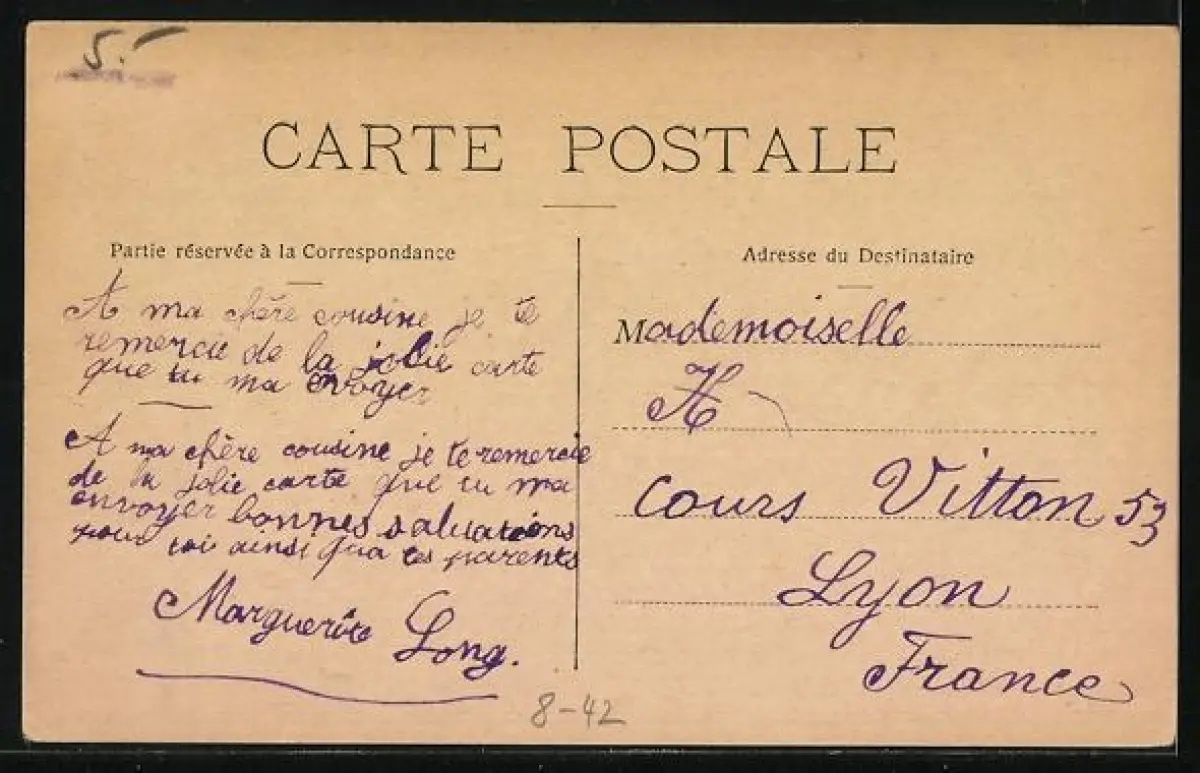 5.-
CARTE POSTALE
Partie réservée à la Correspondance
A ma chère cousine je te
remercie de la jolie carte
que tu ma envoyer
A ma chère cousine je te remercie
de la jolie carte que tu ma
envoyer bonnes salutations
pour toi ainsi qua tes parents
Marguerite Long.
8-42
Adresse du Destinataire
Mademoiselle
cours Vitton 53
Lyon
France